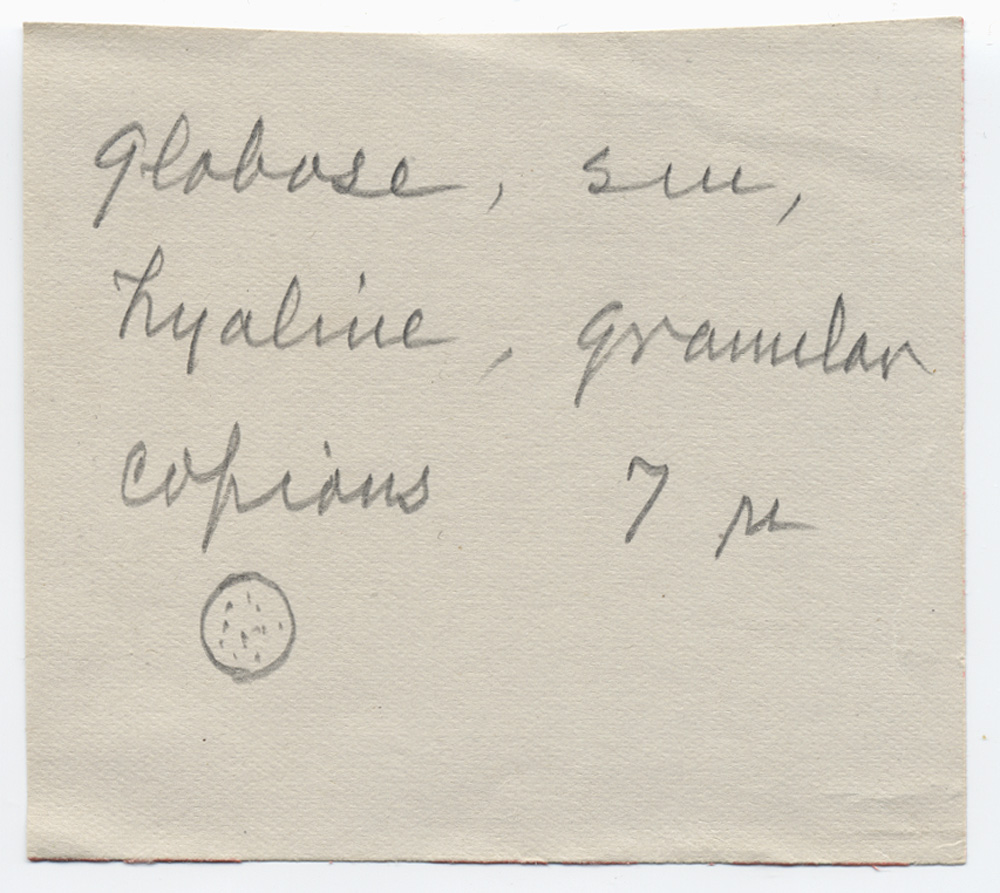 globose, sm,
hyaline, granular
copious 7 µ